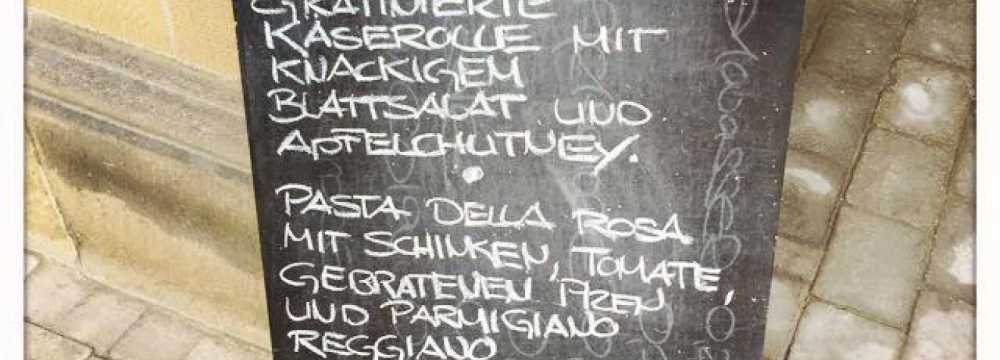 GRATINIERTE
KÄSEROLLE MIT
KNACKIGEM
BLATTSALAT UND
APFELCHUTNEY.
PASTA DELLA ROSA
MIT SCHINKEN, TOMATE,
GEBRATENEN PILZEN
UND PARMIGIANO
REGGIANO